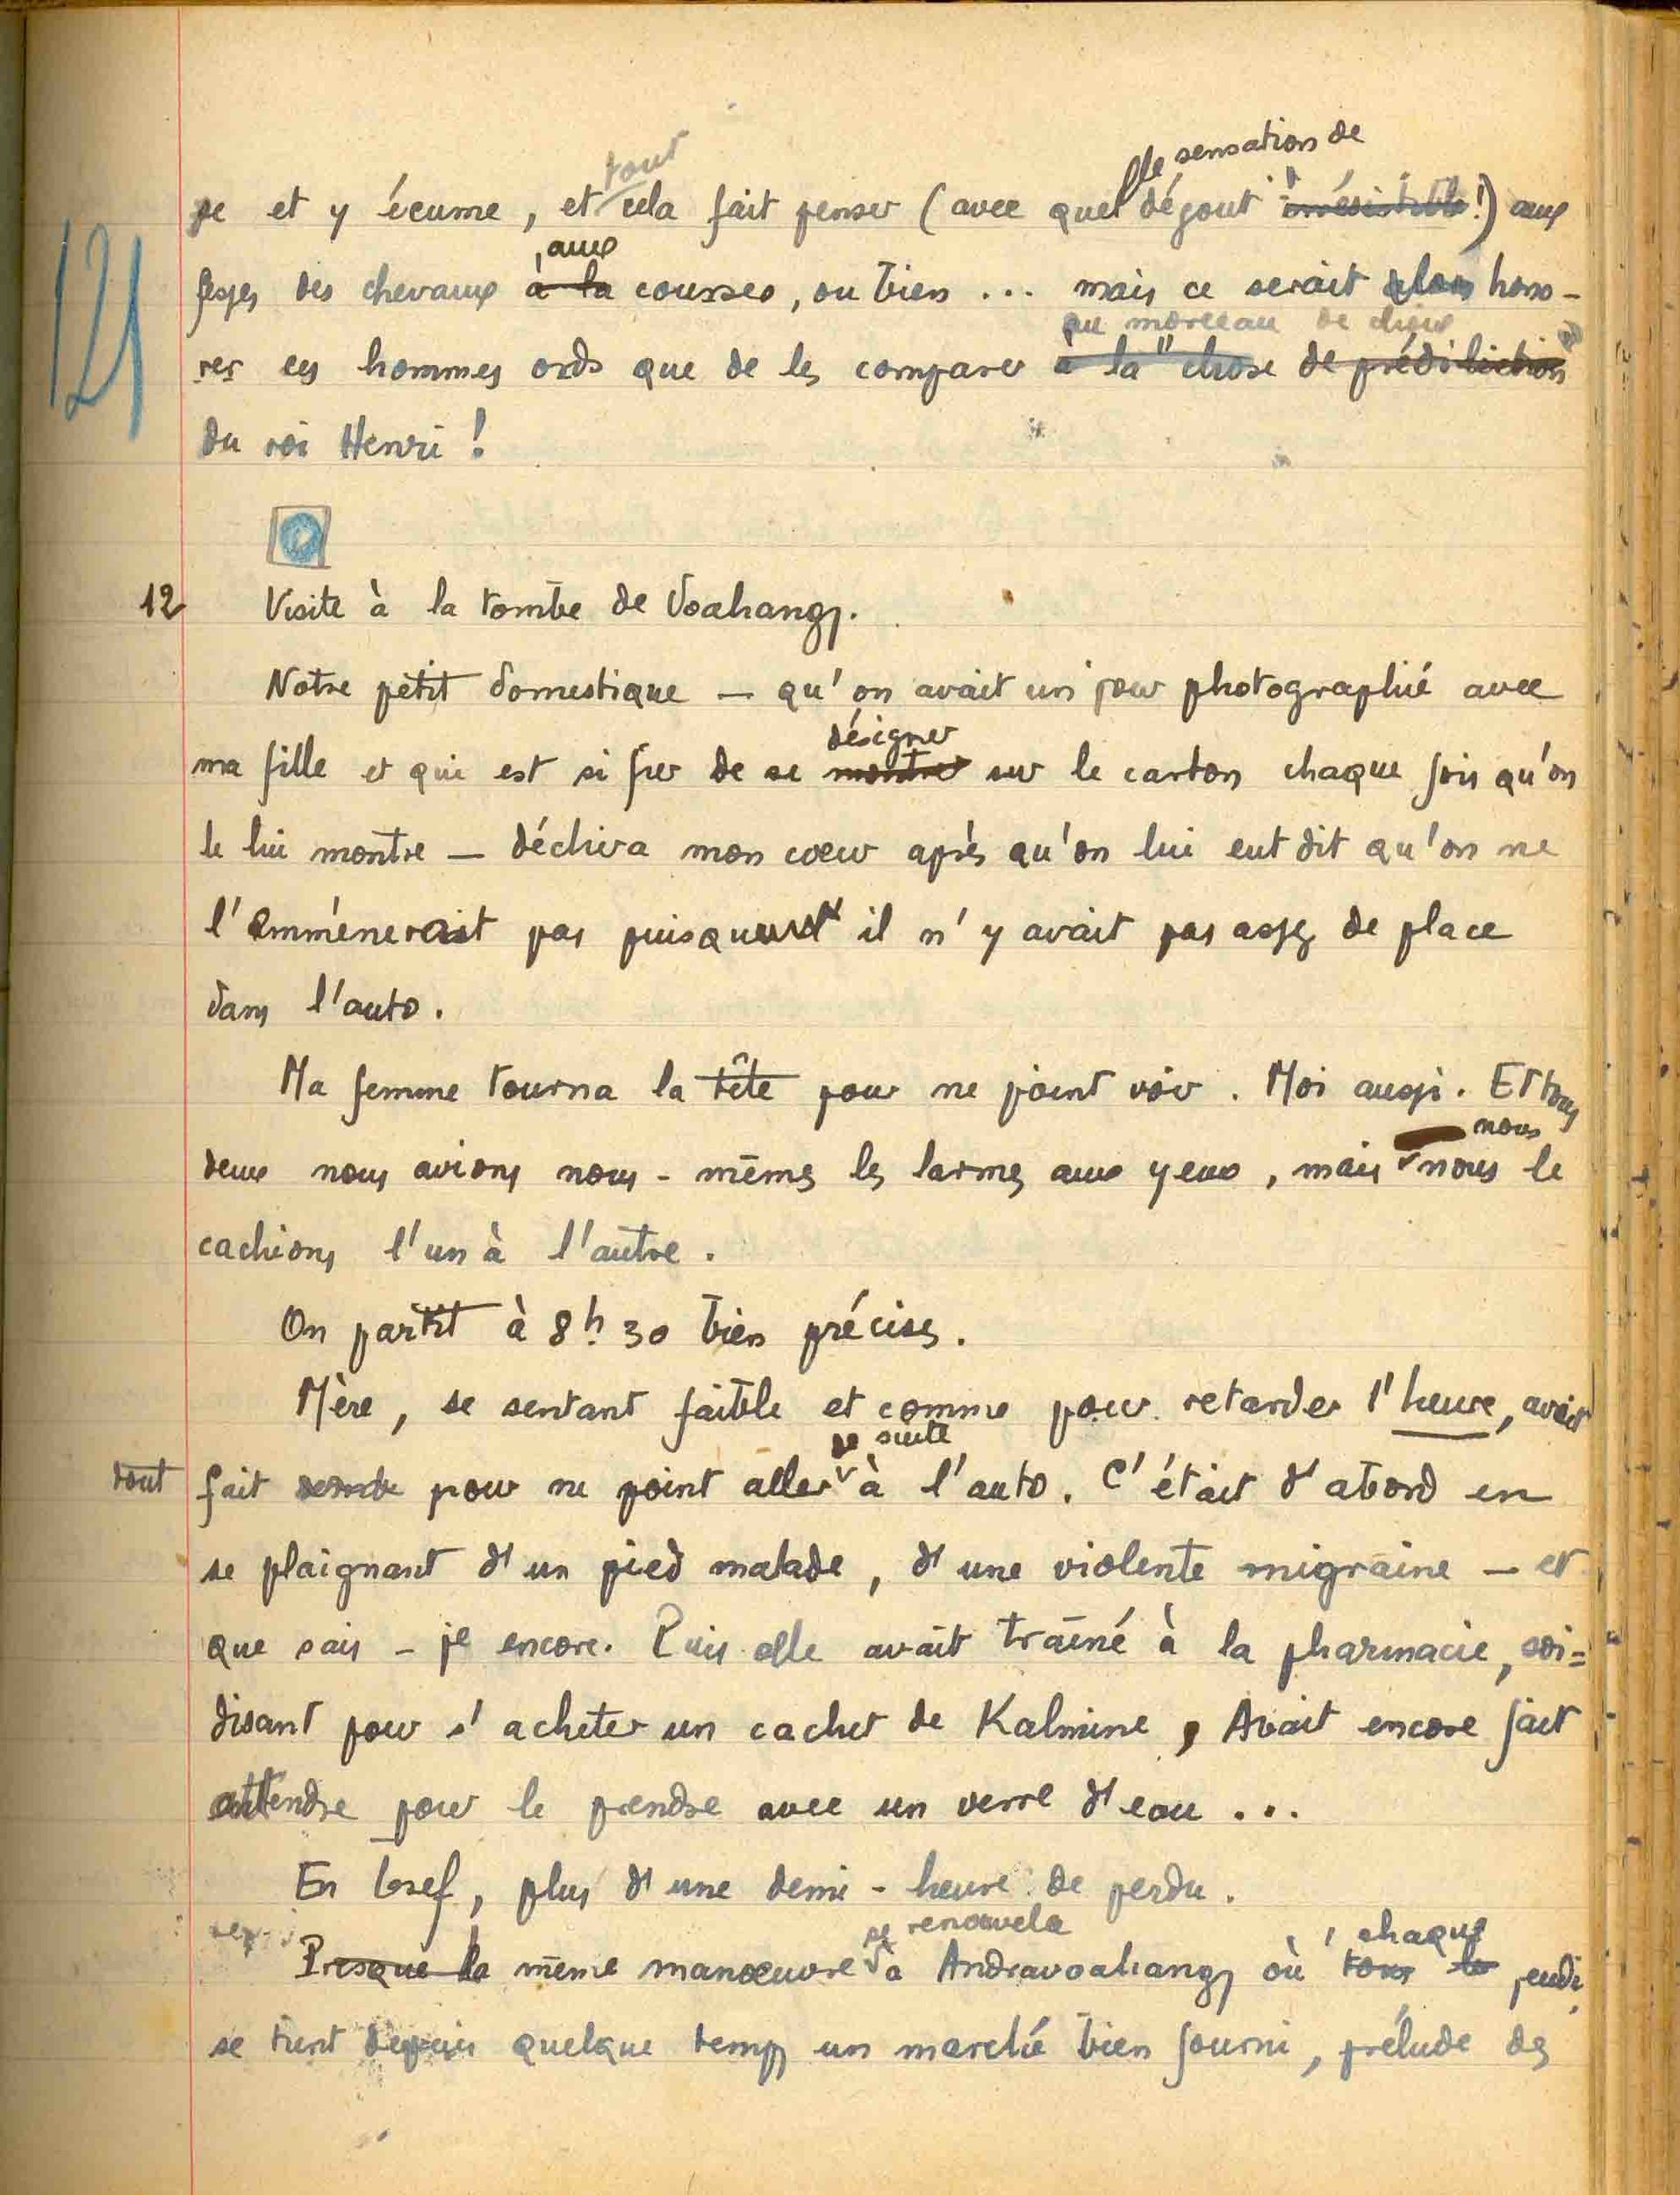 121
tout
lle sensation de
se et y écume, et cela fait penser (avec quel dégout irrésistible !) aux
aux
fesses des chevaux à la courses, ou bien ... mais ce serait alors hono-
au morceau de choix
rer ces hommes ords que de les comparer à la "chose de prédilection"
du roi Henri !
12 Visite à la tombe de Voahangy.
Notre petit domestique — qu'on avait un jour photographié avec
désigner
ma fille et qui est si fier de se montrer sur le carton chaque fois qu'on
le lui montre — déchira mon cœur après qu'on lui eut dit qu'on ne
l'emmènerait pas puisque il n'y avait pas assez de place
dans l'auto.
Ma femme tourna la tête pour ne point voir. Moi aussi. Et tous
nous
deux nous avions nous-mêmes les larmes aux yeux, mais nous le
cachions l'un à l'autre.
On partit à 8h 30 bien précises.
Mère, se sentant faible et comme pour retarder l'heure, avait
de suite
tout fait pour ne point aller à l'auto. C'était d'abord en
se plaignant d'un pied malade, d'une violente migraine — et
que sais-je encore. Puis elle avait traîné à la pharmacie, soi=
disant pour s'acheter un cachet de Kalmine, Avait encore fait
attendre pour le prendre avec un verre d'eau ...
En bref, plus d'une demi-heure de perdu.
se renouvela chaque
Presque la même manœuvre à Andravoahangy où tous les jeudi
se tient depuis quelque temps un marché bien fourni, prélude des